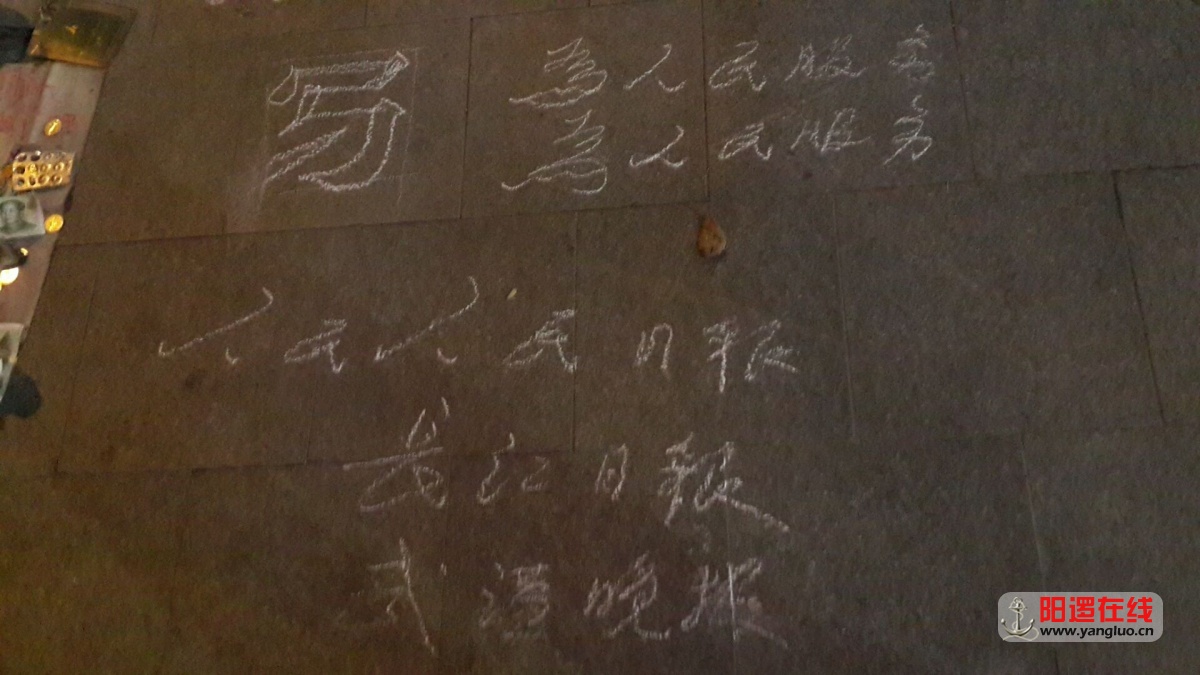 为人民服务
为人民服务
人民人民日报
长江日报
武汉晚报
阳逻在线
www.yangluo.cn